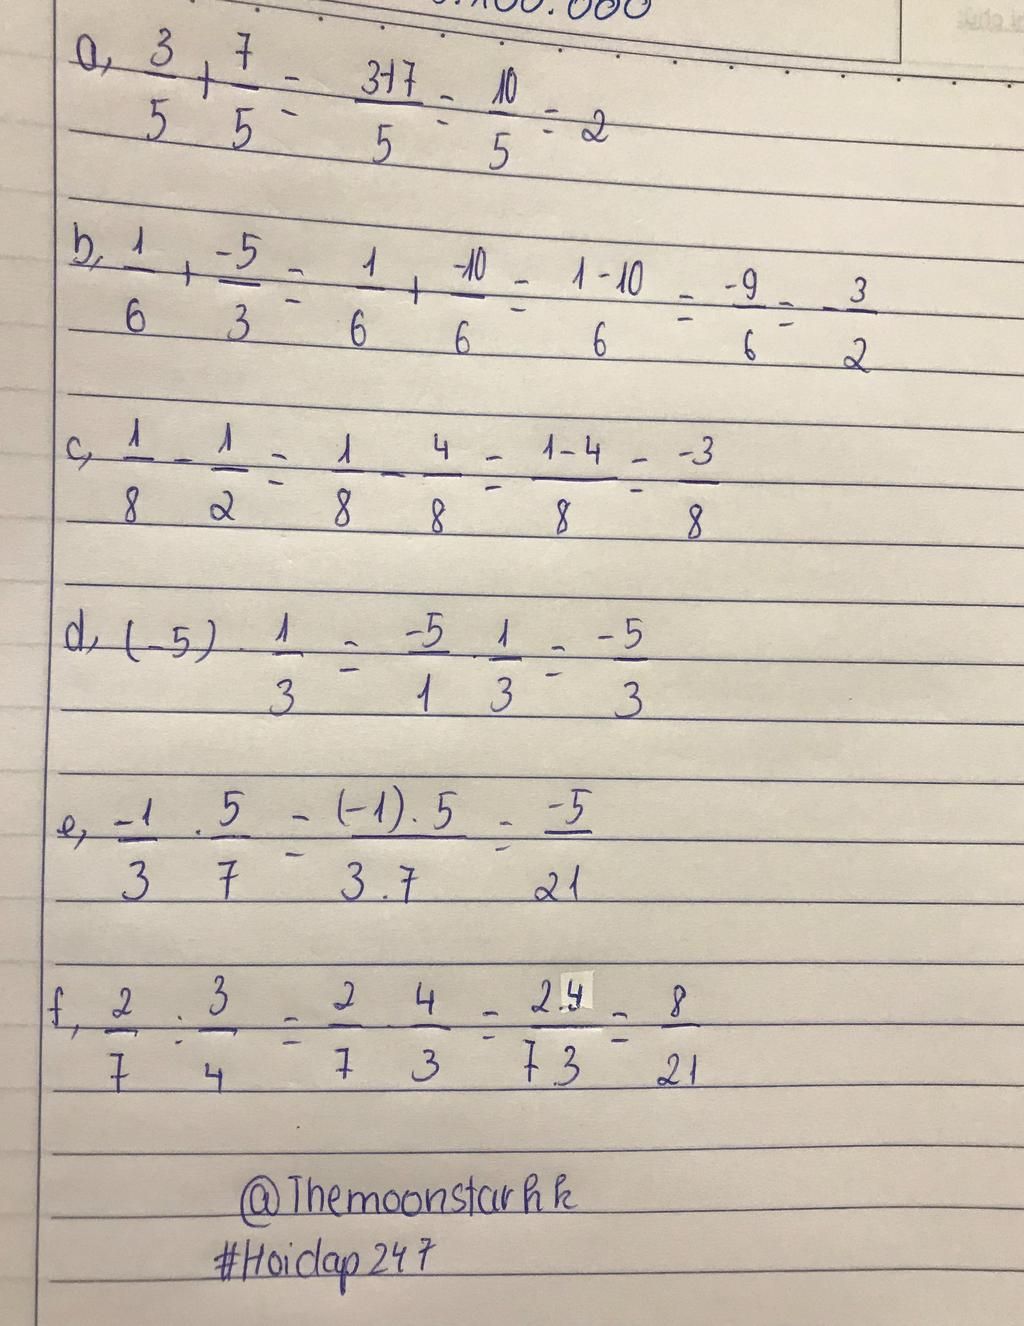 .100.000
a, 3/5 + 7/5 = 3+7/5 = 10/5 = 2
b, 1/6 + -5/3 = 1/6 + -10/6 = 1-10/6 = -9/6 = -3/2
c, 1/8 - 1/2 = 1/8 - 4/8 = 1-4/8 = -3/8
d, (-5) . 1/3 = -5/1 . 1/3 = -5/3
e, -1/3 . 5/7 = (-1).5/3.7 = -5/21
f, 2/7 : 3/4 = 2/7 . 4/3 = 2.4/7 3 = 8/21
@Themoonstarhk
#Hoidap247